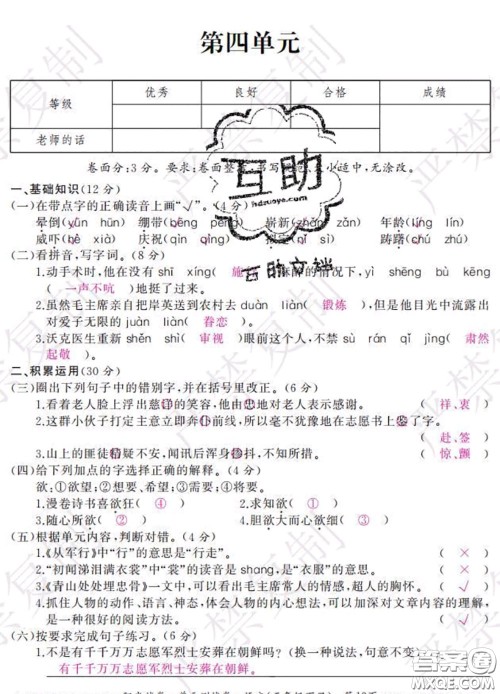 第四单元
等级 优秀 良好 合格 成绩
老师的话
卷面分:3分。要求:卷面整 小适中,无涂改。
互助
hdzuoye.com
互助文档
严禁复制
一、基础知识(12分)
(一)在带点字的正确读音上画“√”。(4分)
晕倒(yūn hūn) 绷带(bēng pēng) 崭新( zǎn) 年龄(
威吓( xià) 庆祝(qìn qìng) 踌躇(chú zhú)
(二)看拼音,写字词。(8分)
1.动手术时,他在没有 shī xíng( 施 的情况下, yì shēng bù kēng
( 一声不吭 )地挺了过来。
2.虽然毛主席亲自把岸英送到农村去 duàn liàn( 锻炼 ),但是他目光中流露出
对爱子无限的 juàn liàn( 眷恋 )。
3.沃克医生重新 shěn shì( 审视 )眼前这个人,不禁 sù rán qǐ jìng( 肃然
起敬 )。
二、积累运用(30分)
(三)圈出下列句子中的错别字,并在括号里改正。(6分)
1.看着老人脸上浮出慈详的笑容,他由忠地对老人表示感谢。 ( 祥、衷 )
2.这群小伙子打定主意立即奔仆前线,所以毫不犹豫地在志愿书上鉴了字。
( 赴、签 )
3.山上的匪徒 疑不安,闻讯后浑身 抖,不知所措。 ( 惊、颤 )
(四)给下列加点的字选择正确的解释。(4分)
欲:①欲望;②想要、希望;③需要;④将要。
1.漫卷诗书喜欲狂( ④ ) 2.求知欲( ① )
3.随心所欲( ② ) 4.胆欲大而心欲细( ③ )
(五)根据单元内容,判断对错。(4分)
1.《从军行》中“行”的意思是“行走”。 ( × )
2.“初闻涕泪满衣裳”中“裳”的读音是 shang,是“衣服”的意思。 ( × )
3.《青山处处埋忠骨》一文中,可以看出毛主席常人的情感,超人的胸怀。 ( √ )
4.抓住人物的动作、语言、神态,体会人物的内心,可以加深对文章内容的理解,
是一种很好的阅读方法。 ( √ )
(六)按要求完成句子练习。(6分)
1.不是有千千万万志愿军烈士安葬在朝鲜吗?(改为陈述句)
有千千万万志愿军烈士安葬在朝鲜。